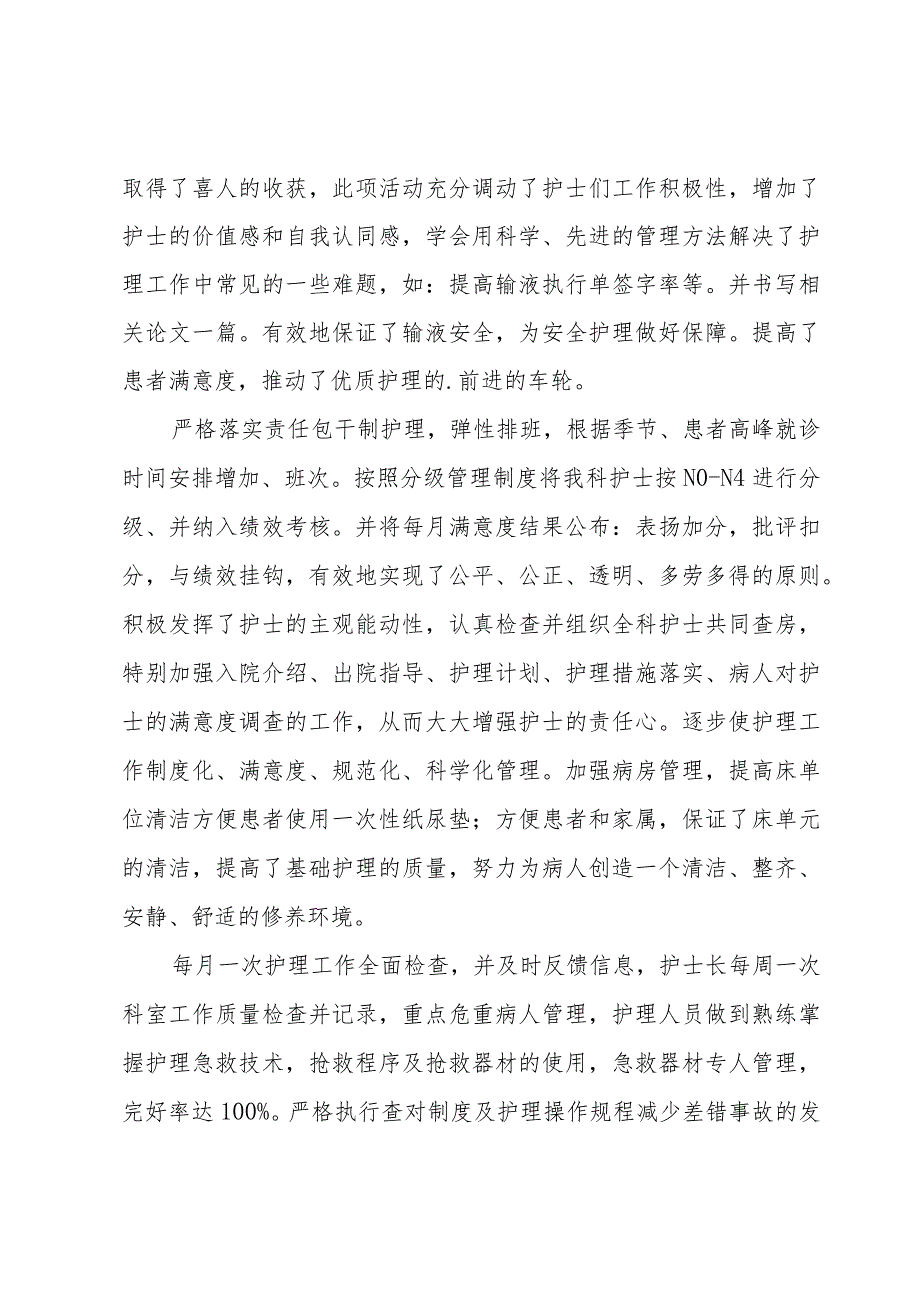 取得了喜人的收获，此项活动充分调动了护士们工作积极性，增加了
护士的价值感和自我认同感，学会用科学、先进的管理方法解决了护
理工作中常见的一些难题，如：提高输液执行单签字率等。并书写相
关论文一篇。有效地保证了输液安全，为安全护理做好保障。提高了
患者满意度，推动了优质护理的.前进的车轮。
严格落实责任包干制护理，弹性排班，根据季节、患者高峰就诊
时间安排增加、班次。按照分级管理制度将我科护士按 N0-N4 进行分
级、并纳入绩效考核。并将每月满意度结果公布：表扬加分，批评扣
分，与绩效挂钩，有效地实现了公平、公正、透明、多劳多得的原则。
积极发挥了护士的主观能动性，认真检查并组织全科护士共同查房，
特别加强入院介绍、出院指导、护理计划、护理措施落实、病人对护
士的满意度调查的工作，从而大大增强护士的责任心。逐步使护理工
作制度化、满意度、规范化、科学化管理。加强病房管理，提高床单
位清洁方便患者使用一次性纸尿垫；方便患者和家属，保证了床单元
的清洁，提高了基础护理的质量，努力为病人创造一个清洁、整齐、
安静、舒适的修养环境。
每月一次护理工作全面检查，并及时反馈信息，护士长每周一次
科室工作质量检查并记录，重点危重病人管理，护理人员做到熟练掌
握护理急救技术，抢救程序及抢救器材的使用，急救器材专人管理，
完好率达 100%。严格执行查对制度及护理操作规程减少差错事故的发